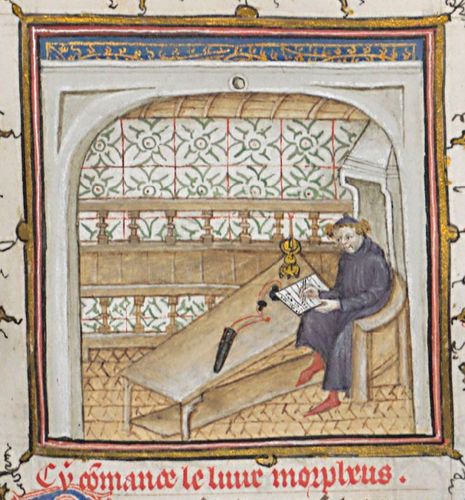 Cy comance le liure morpheus.